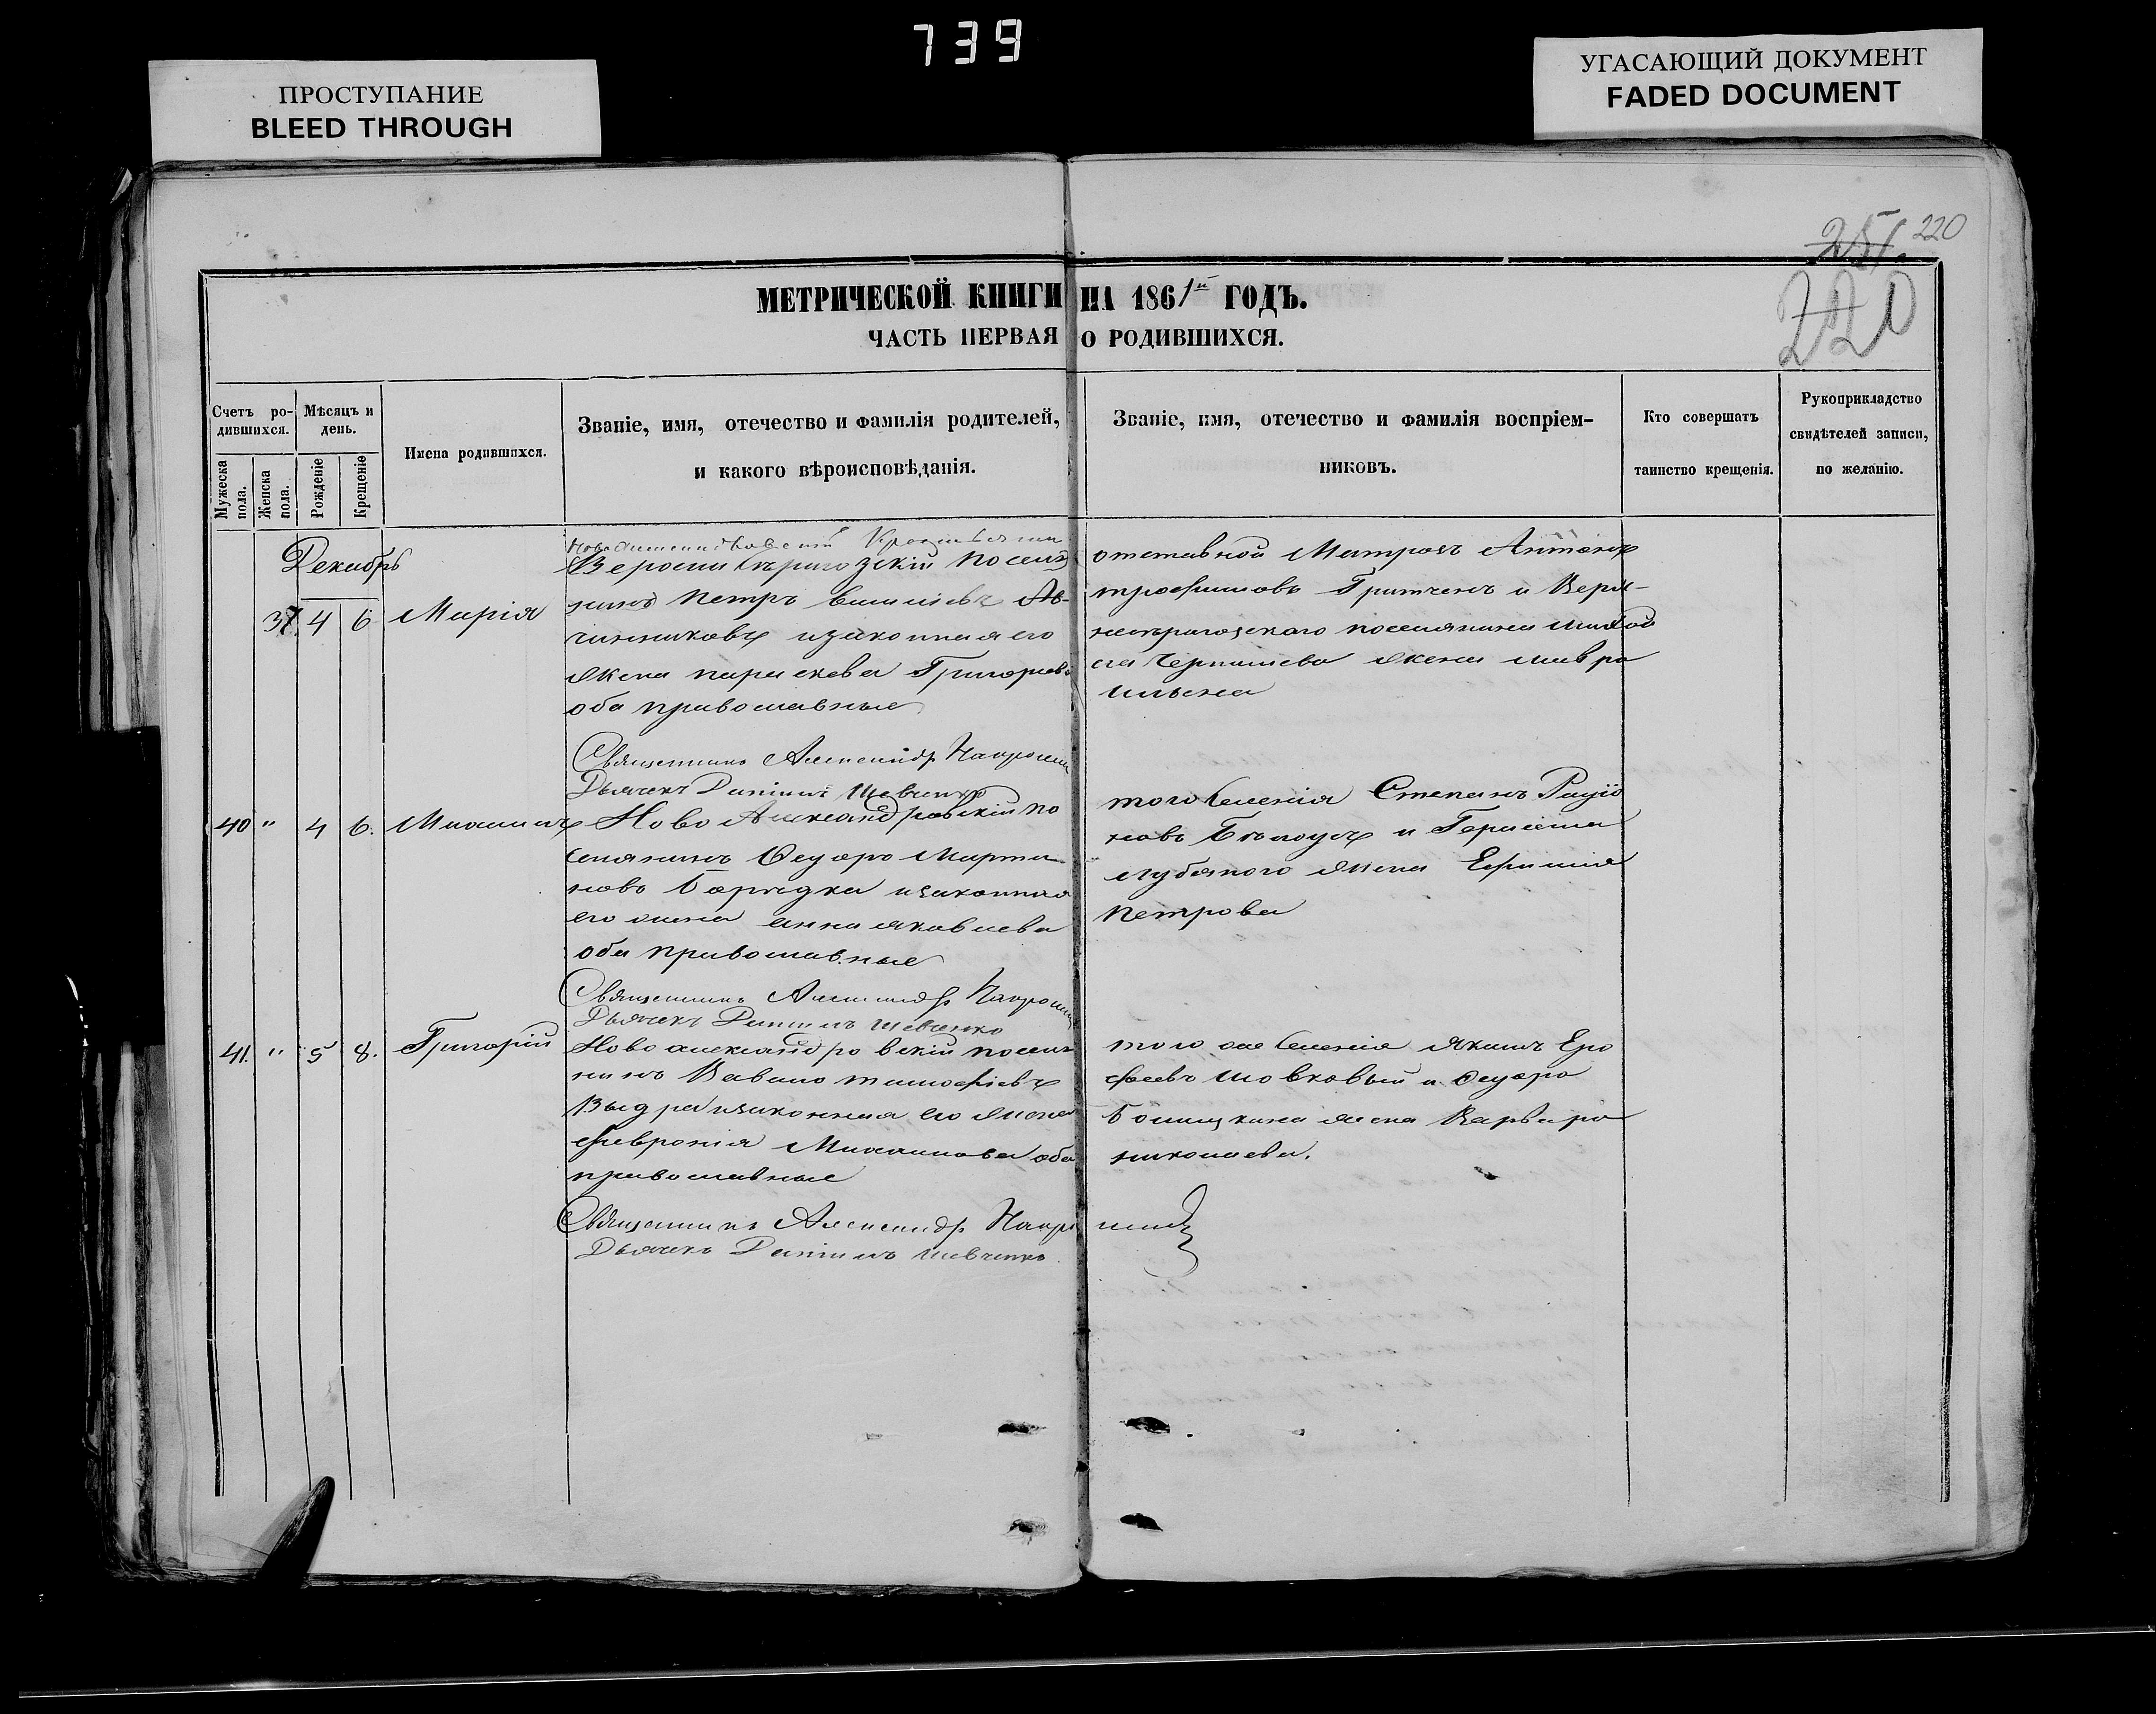 739
ПРОСТУПАНИЕ
BLEED THROUGH
УГАСАЮЩИЙ ДОКУМЕНТ
FADED DOCUMENT
251. 220
220
МЕТРИЧЕСКОЙ КНИГИ НА 1861й ГОДЪ.
ЧАСТЬ ПЕРВАЯ О РОДИВШИХСЯ.
Счетъ родившихся.
Мужеска пола.
Женска пола.
Мѣсяцъ и день.
Рожденіе
Крещеніе
Имена родившихся.
Званіе, имя, отечество и фамилія родителей,
и какого вѣроисповѣданія.
Званіе, имя, отечество и фамилія воспріем-
никовъ.
Кто совершатъ
таинство крещенія.
Рукоприкладство
свидѣтелей записи,
по желанію.
Декабрь
37. 4 6 Марія
посел
нинъ Петръ Ав-
чинниковъ и законная его
жена параскева Григорьева
оба православные
отставной Матрозъ Антонъ
трофимовъ Гритченъ и
поселянина
жена мавра
ильина
Священникъ Александр
Дьячекъ Даніилъ Шевченко
40 " 4 6.
Ново Александровскій по
селянинъ Федоръ Марти
новъ и законная
его жена анна яковлева
оба православные
того Селенія Степанъ
новъ Бѣлоусъ и Герасима
жена Ефимія
Петрова
Священникъ Александр
Дьячекъ Даніилъ Шевченко
41. " 5 8. Григорій
Ново александровскій посел
нинъ тимофіевъ
Выдра и законная его жена
февронія оба
православные
того же Селенія Якимъ Еро
феевъ Шовковый и Федора
жена Варвара
николаева.
Священникъ Александр
Дьячекъ Даніилъ Шевченко